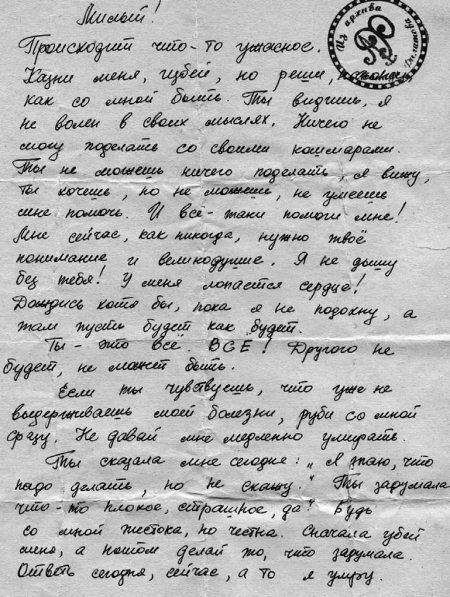 Милый!
Из архива
Дм. Платону
Происходит что-то ужасное.
Казни меня, избей, но реши, наконец,
как со мной быть. Ты видишь, я
не волен в своих мыслях. Ничего не
могу поделать со своими кошмарами.
Ты не можешь ничего поделать, я вижу,
ты хочешь, но не можешь, не умеешь
мне помочь. И всё-таки помоги мне!
Мне сейчас, как никогда, нужно твоё
понимание и великодушие. Я не дышу
без тебя! У меня лопается сердце!
Дождись хотя бы, пока я не подохну, а
там пусть будет как будет.
Ты - это всё. ВСЁ! Другого не
будет, не может быть.
Если ты чувствуешь, что уже не
выдерживаешь моей болезни, руби со мной
сразу. Не давай мне медленно умирать.
Ты сказала мне сегодня: „Я знаю, что
надо делать, но не скажу." Ты задумала
что-то плохое, страшное, да? Будь
со мной жестока, но честна. Сначала убей
меня, а потом делай то, что задумала.
Ответь сегодня, сейчас, а то я умру.